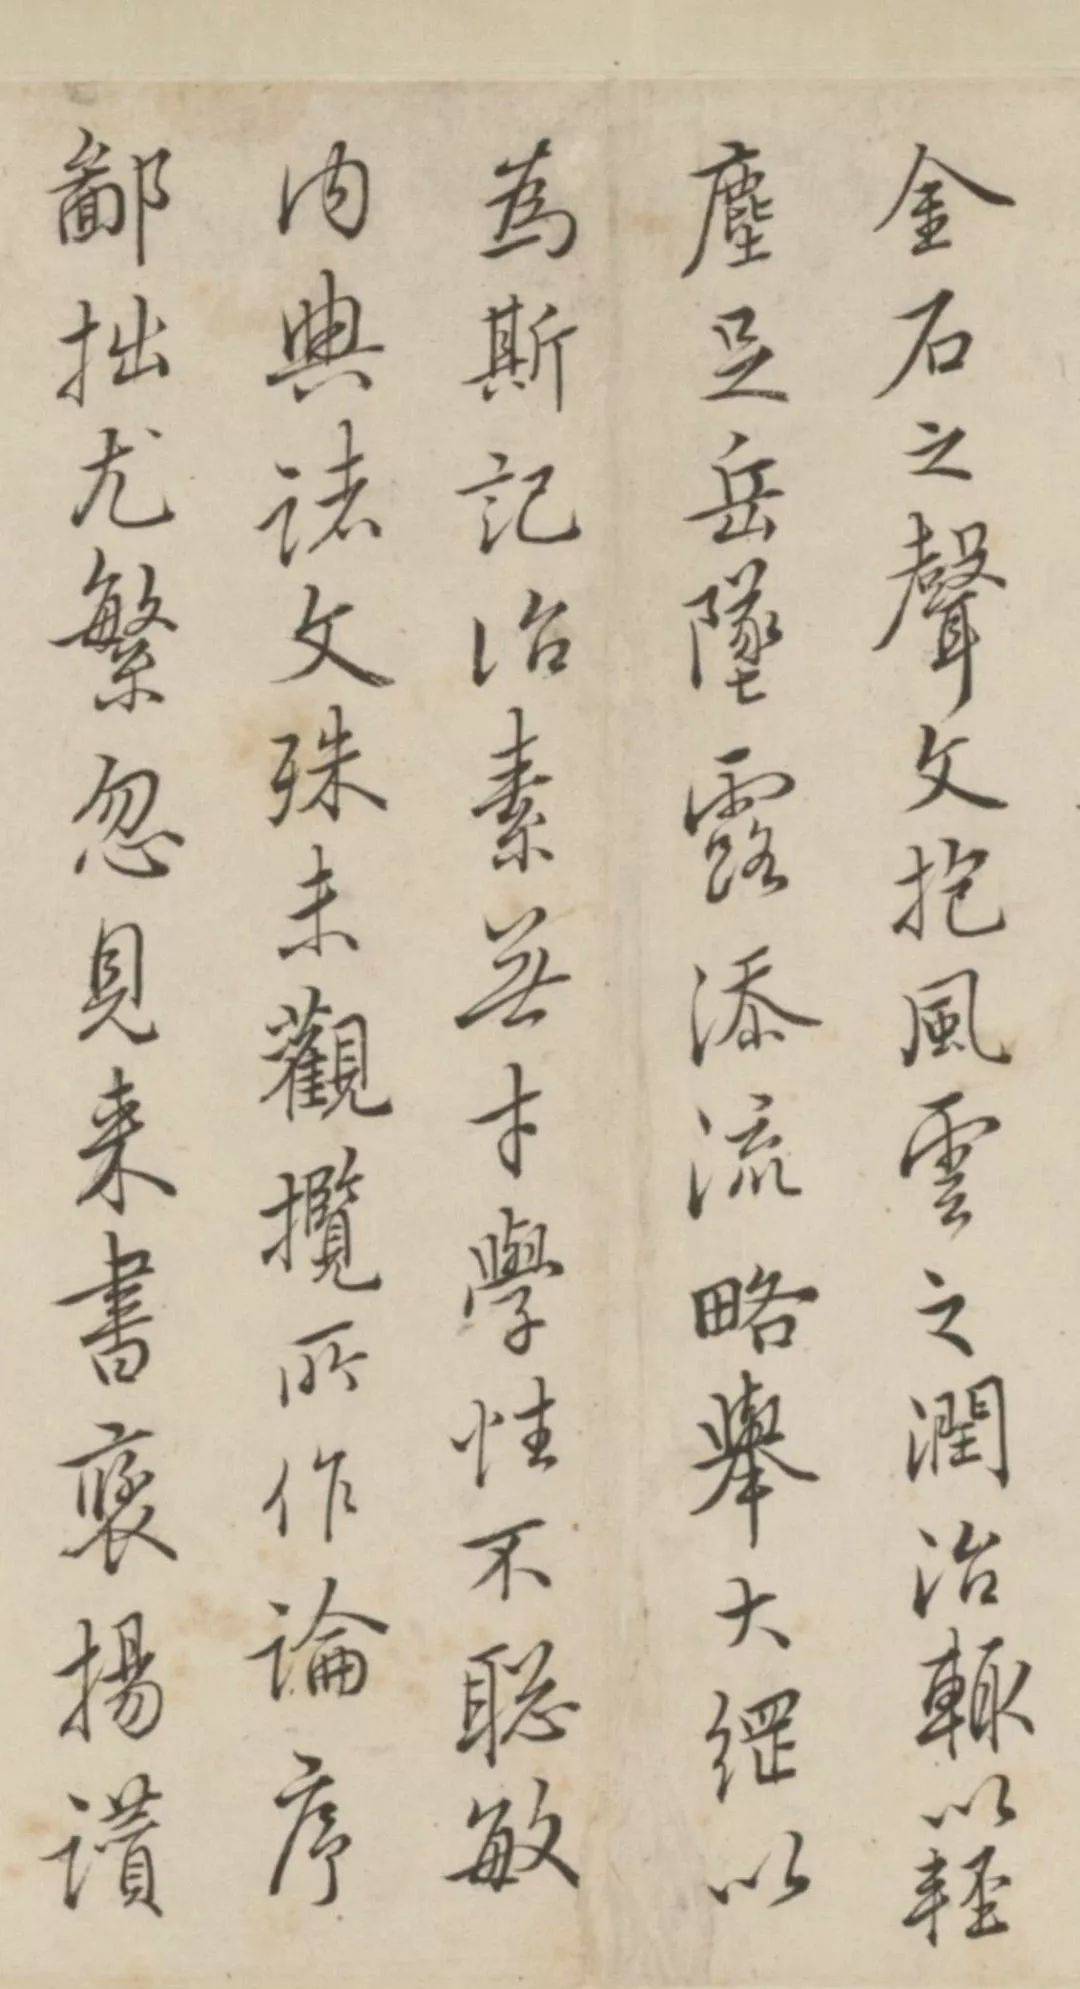 金石之聲文抱風雲之潤治輙以輕
塵足岳墜露添流略舉大綱以
為斯記治素無才學性不聡敏
内典諸文殊未觀攬所作論序
鄙拙尤繁忽見来書褒揚讃